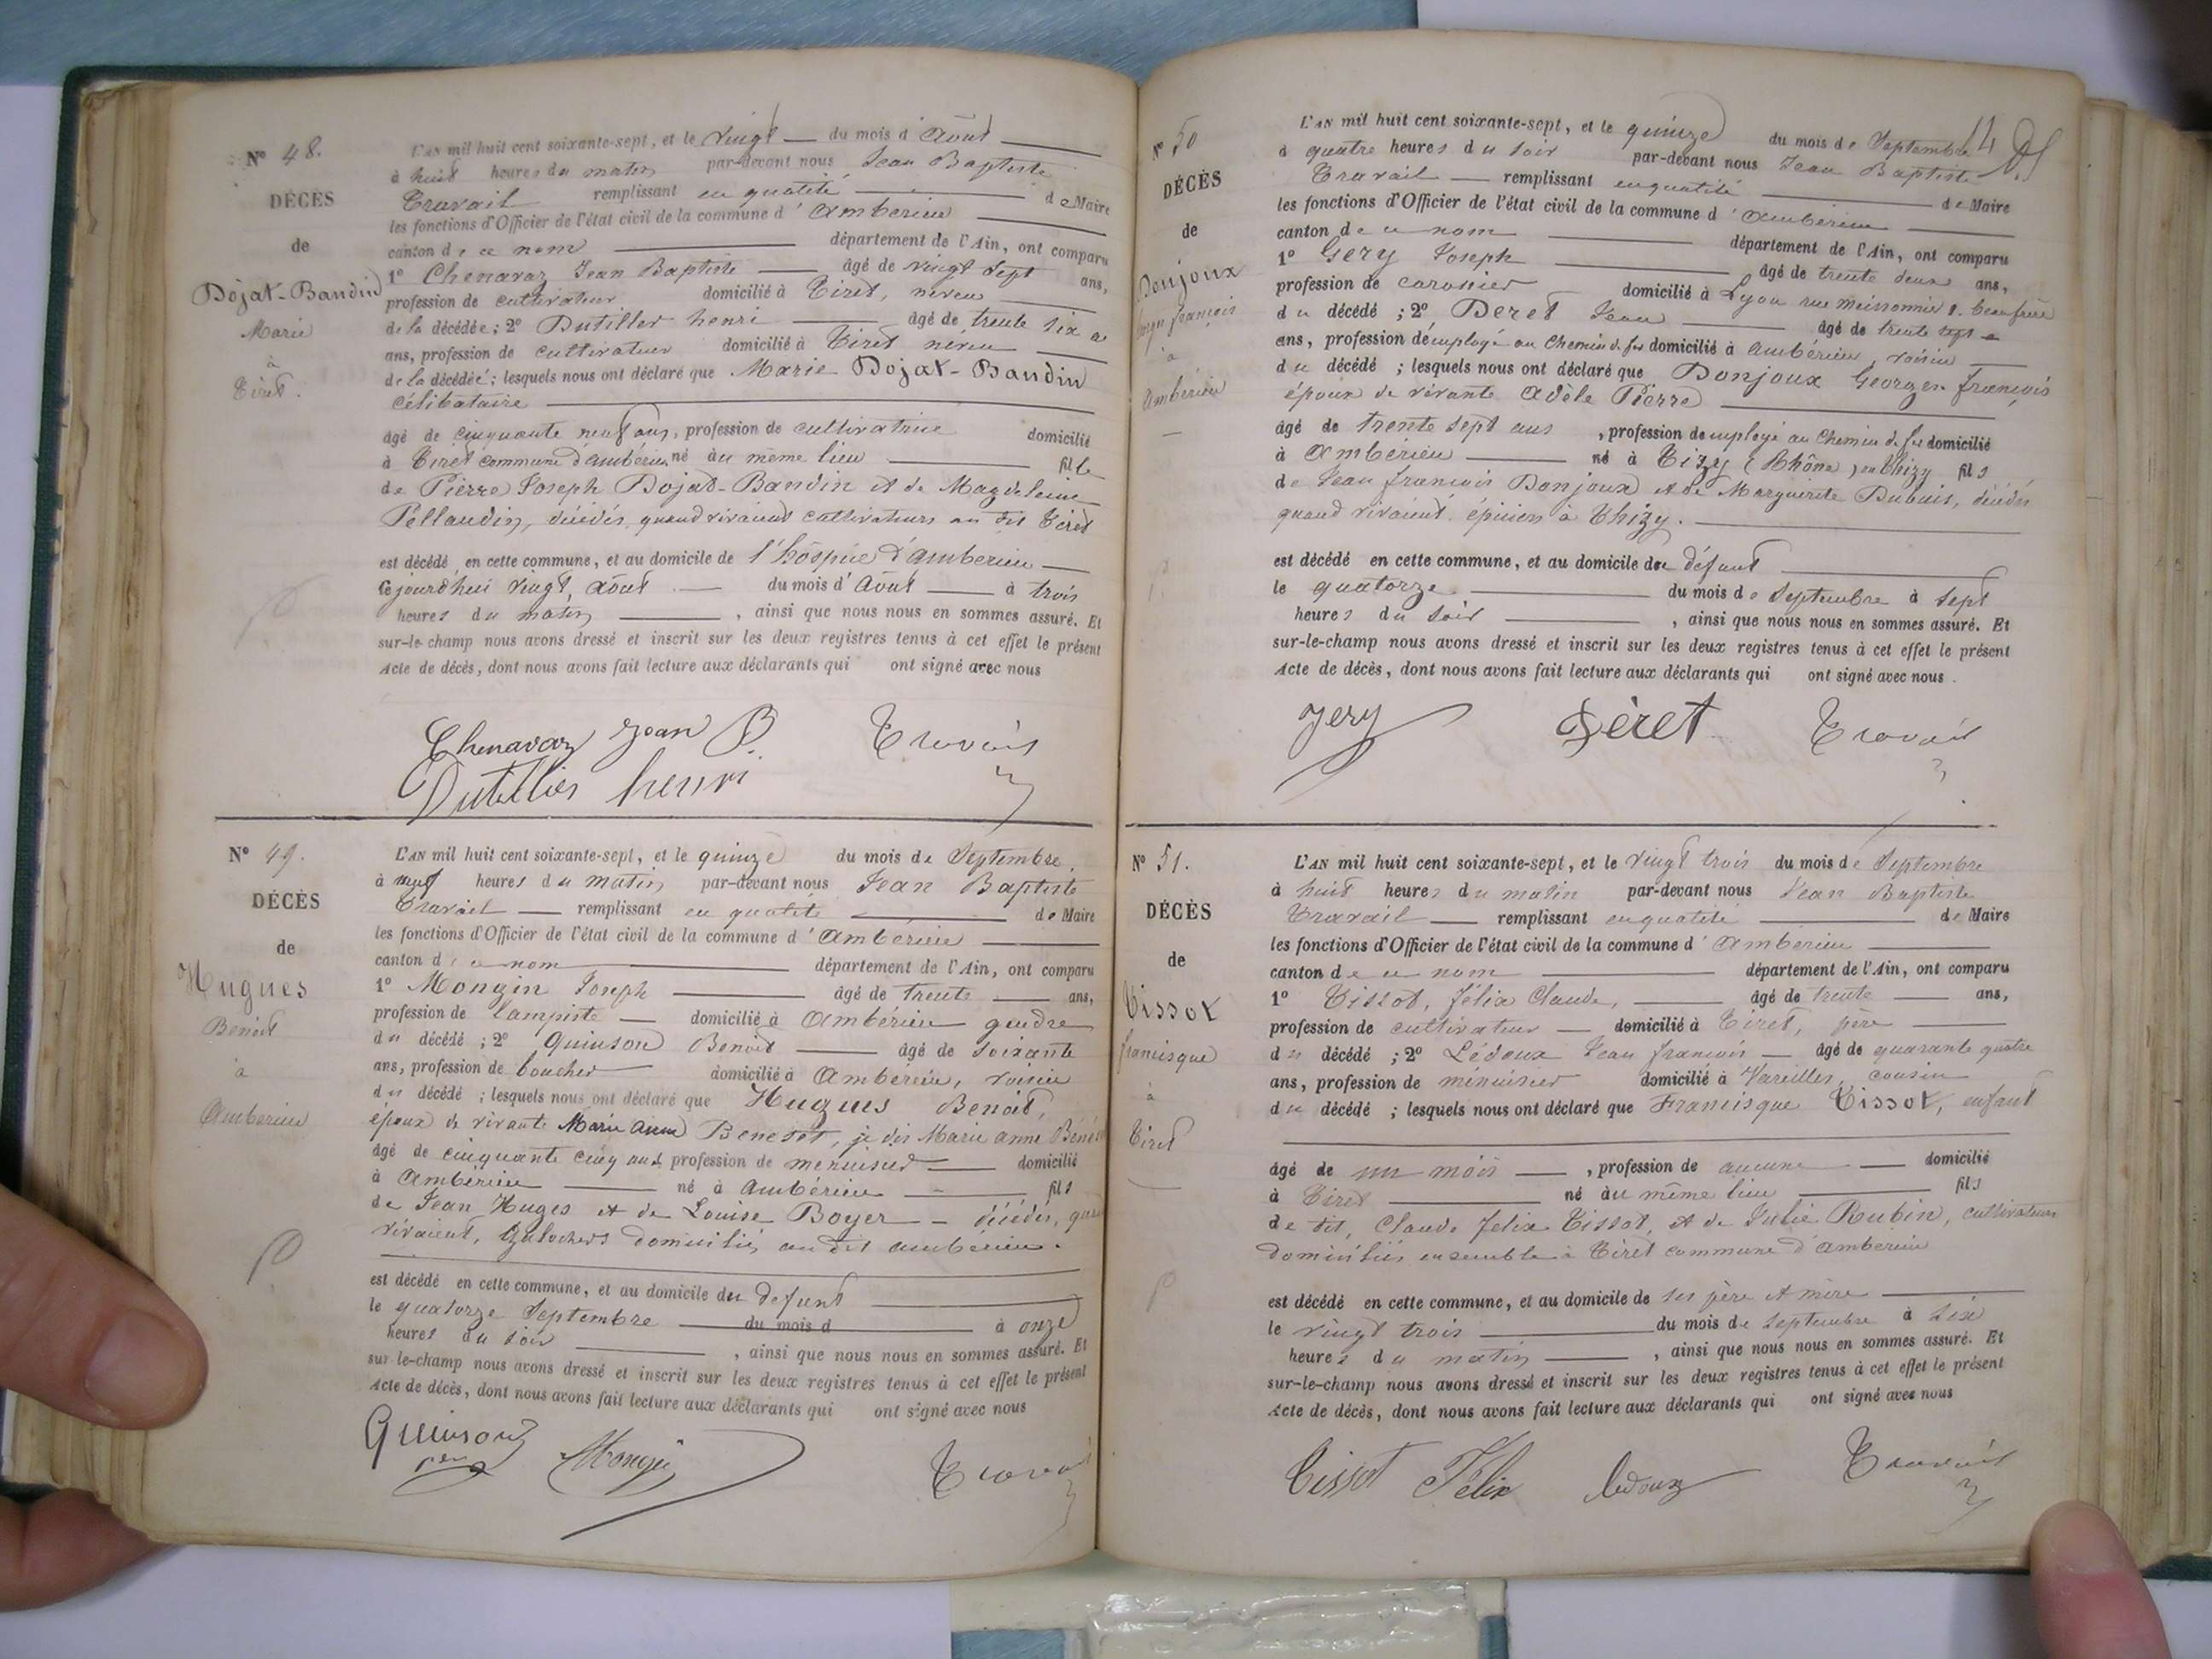 N° 48.
DÉCÈS
de
Dojat-Bandin
Marie
à
Tiret.
L'AN mil huit cent soixante-sept, et le vingt du mois d'Août
à huit heures du matin par-devant nous Jean Baptiste
Travail remplissant en qualité de Maire
les fonctions d'Officier de l'état civil de la commune d'Amberieu
canton de ce nom département de l'Ain, ont comparu
1° Chenavaz Jean Baptiste âgé de vingt sept ans,
profession de cultivateur domicilié à Tiret, neveu
de la décédée; 2° Dutillet henri âgé de trente six
ans, profession de cultivateur domicilié à Tiret neveu
de la décédée; lesquels nous ont déclaré que Marie Dojat-Bandin
célibataire
âgé de cinquante neuf ans, profession de cultivatrice domicilié
à Tiret commune d'amberieu né au même lieu fille
de Pierre Joseph Dojat-Bandin et de Magdeleine
Pellaudin, décédés, quand vivaient cultivateurs au dit Tiret
est décédé en cette commune, et au domicile de l'hôspice d'amberieu
cejourd'hui vingt, août du mois d'Août à trois
heures du matin, ainsi que nous nous en sommes assuré. Et
sur-le-champ nous avons dressé et inscrit sur les deux registres tenus à cet effet le présent
Acte de décès, dont nous avons fait lecture aux déclarants qui ont signé avec nous
Chenavaz Jean B. Travail
Dutillier henri
N° 49.
DÉCÈS
de
Hugues
Benoit
à
Amberieu
L'AN mil huit cent soixante-sept, et le quinze du mois de Septembre
à neuf heures du matin par-devant nous Jean Baptiste
Travail remplissant en qualité de Maire
les fonctions d'Officier de l'état civil de la commune d'Amberieu
canton de ce nom département de l'Ain, ont comparu
1° Mongin Joseph âgé de trente ans,
profession de lampiste domicilié à Ambérieu gendre
du décédé; 2° Quinson Benoit âgé de soixante
ans, profession de boucher domicilié à Ambérieu, voisin
du décédé; lesquels nous ont déclaré que Hugues Benoit,
époux de vivante Marie anne Benetot, je dis Marie anne
âgé de cinquante cinq ans, profession de menuisier domicilié
à Ambérieu né à Ambérieu fils
de Jean Huges et de Louise Boyer – décédés,
vivaient, Galochers domiciliés au dit ambérieu.
est décédé en cette commune, et au domicile du defunt
le quatorze Septembre du mois d à onze
heures du soir, ainsi que nous nous en sommes assuré. Et
sur le-champ nous avons dressé et inscrit sur les deux registres tenus à cet effet le présent
Acte de décès, dont nous avons fait lecture aux déclarants qui ont signé avec nous
Quinson Mongin Travail
N° 50
DÉCÈS
de
Donjoux
françois
à
Ambérieu
L'AN mil huit cent soixante-sept, et le quinze du mois de Septembre
à quatre heures du soir par-devant nous Jean Baptiste
Travail remplissant en qualité de Maire
les fonctions d'Officier de l'état civil de la commune d'amberieu
canton de ce nom département de l'Ain, ont comparu
1° Gery Joseph âgé de trente deux ans,
profession de carossier domicilié à Lyon rue Meissonnier 8. beau frère
du décédé; 2° Deret Jean âgé de trente sept
ans, profession d'employé au Chemin de fer domicilié à ambérieu, voisin
du décédé; lesquels nous ont déclaré que Donjoux Georges françois
époux de vivante Adèle Pierre
âgé de trente sept ans, profession d'employé au Chemin de fer domicilié
à Ambérieu né à Tizy (Rhône) ou Thizy fils
de Jean françois Donjoux et de Marguerite Dubuis, décédés
quand vivaient épiciers à Thizy.
est décédé en cette commune, et au domicile du défunt
le quatorze du mois de Septembre à sept
heures du soir, ainsi que nous nous en sommes assuré. Et
sur-le-champ nous avons dressé et inscrit sur les deux registres tenus à cet effet le présent
Acte de décès, dont nous avons fait lecture aux déclarants qui ont signé avec nous.
Jery Dèret Travail
N° 51.
DÉCÈS
de
Tissot
francisque
à
Tiret
L'AN mil huit cent soixante-sept, et le vingt trois du mois de Septembre
à huit heures du matin par-devant nous Jean Baptiste
Travail remplissant en qualité de Maire
les fonctions d'Officier de l'état civil de la commune d'Amberieu
canton de ce nom département de l'Ain, ont comparu
1° Tissot, félix Claude, âgé de trente ans,
profession de cultivateur domicilié à Tiret, père
du décédé; 2° Lédoux Jean françois âgé de quarante quatre
ans, profession de ménuisier domicilié à Vareilles, cousin
du décédé; lesquels nous ont déclaré que Francisque Tissot, enfant
âgé de un mois, profession de aucune domicilié
à Tiret né au même lieu fils
de dit, Claude felix Tissot, et de Julie Rubin, cultivateurs
domiciliés ensemble à Tiret commune d'amberieu
est décédé en cette commune, et au domicile de ses père et mère
le vingt trois du mois de septembre à six
heures du matin, ainsi que nous nous en sommes assuré. Et
sur-le-champ nous avons dressé et inscrit sur les deux registres tenus à cet effet le présent
Acte de décès, dont nous avons fait lecture aux déclarants qui ont signé avec nous
Tissot Félix ledoux Travail